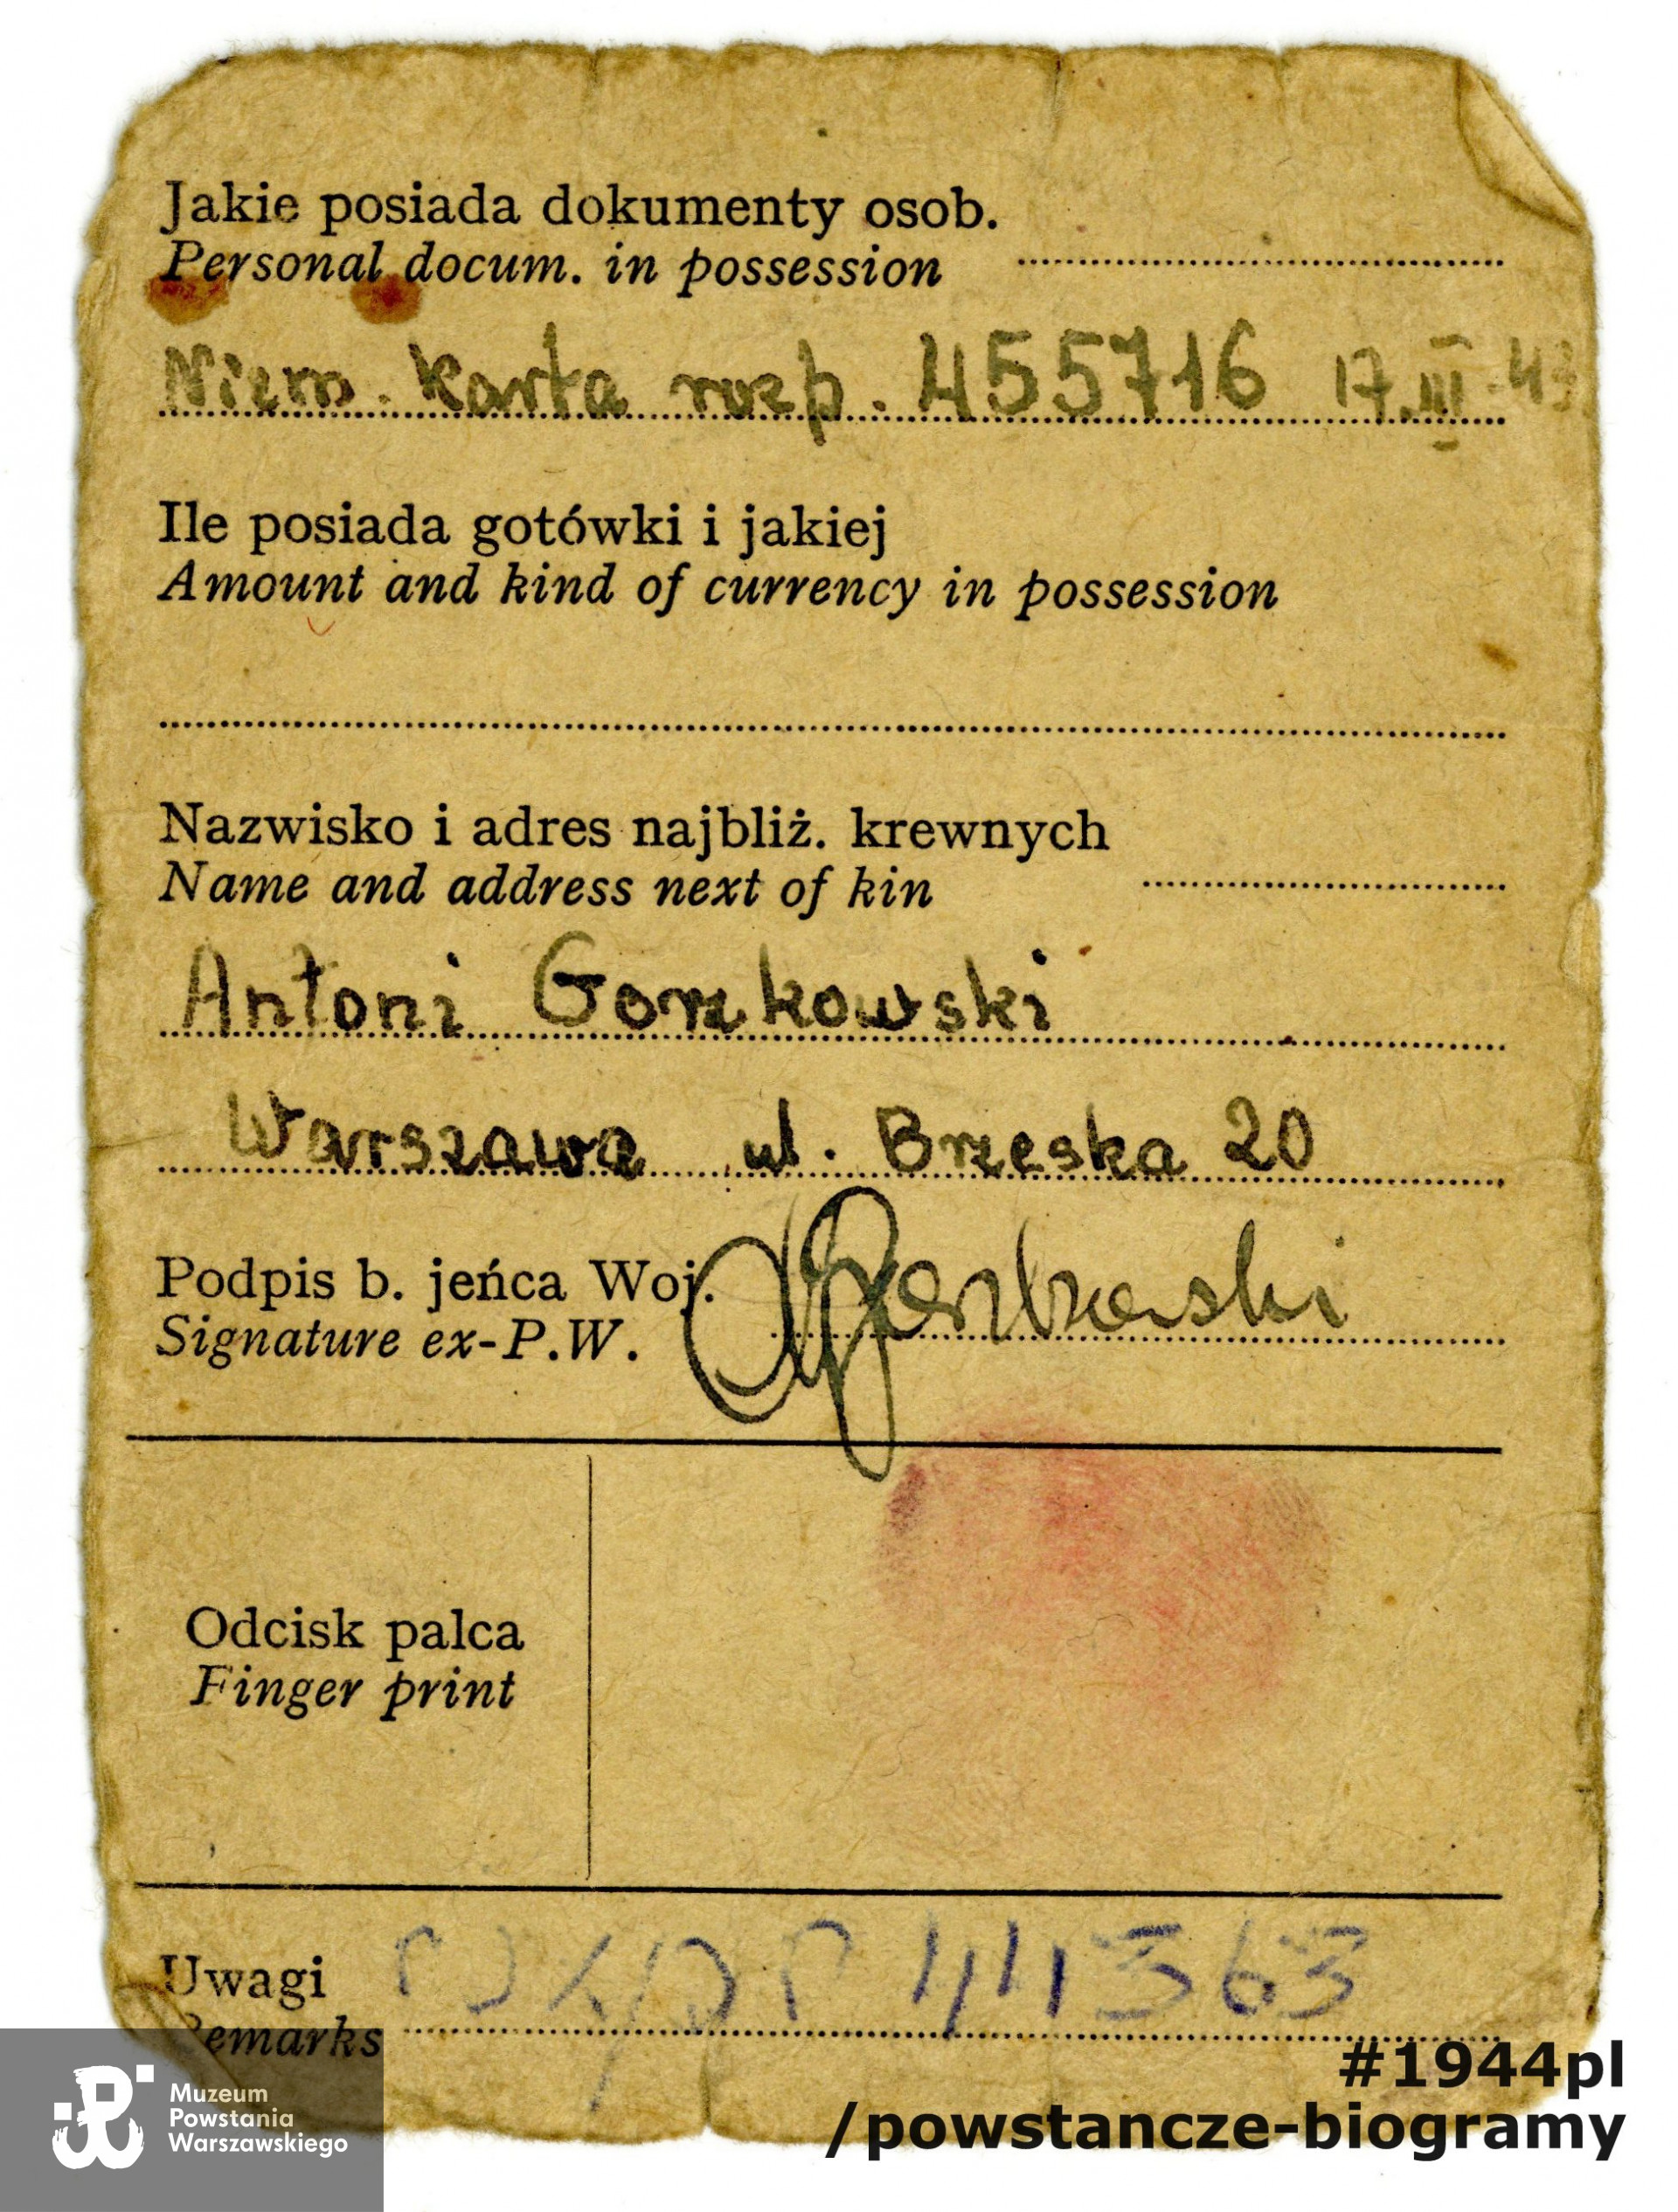 Jakie posiada dokumenty osob.
Personal docum. in possession
Niem. karta rozp. 455716 17.III.43
Ile posiada gotówki i jakiej
Amount and kind of currency in possession
Nazwisko i adres najbliż. krewnych
Name and address next of kin
Antoni Gorzkowski
Warszawa ul. Brzeska 20
Podpis b. jeńca Woj.
Signature ex-P.W.
Odcisk palca
Finger print
Uwagi
Remarks
#1944pl
/powstancze-biogramy
Muzeum
Powstania
Warszawskiego